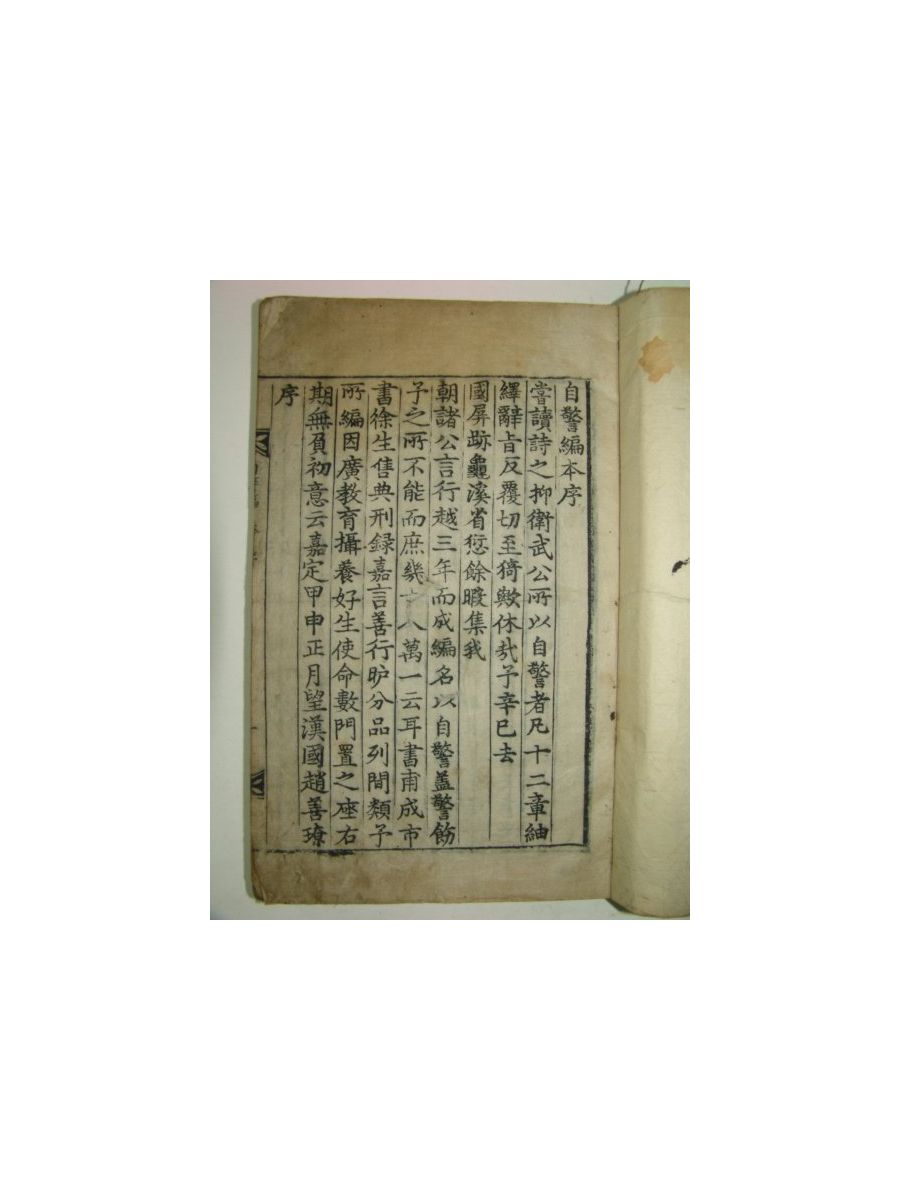 自警編本序
嘗讀詩之抑衛武公所以自警者凡十二章紬
繹辭旨反覆切至猗歟休哉予辛巳去
國屏跡龜溪省愆餘暇集我
朝諸公言行越三年而成編名以自警蓋警飭
予之所不能而庶幾古人萬一云耳書甫成市
書徐生售典刑錄嘉言善行昈分品列間類予
所編因廣教育攝養好生使命數門置之座右
期無負初意云嘉定甲申正月望漢國趙善璙
序